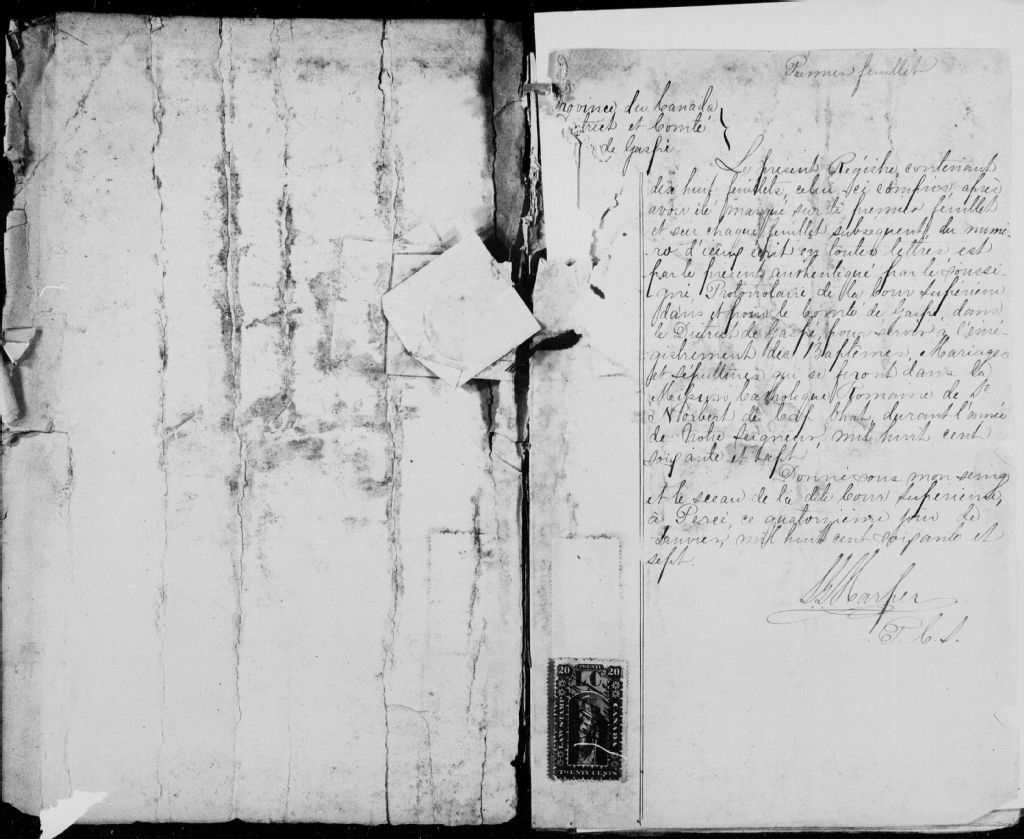 Premier feuillet
Province du Canada
District et Comté
de Gaspé
Le présent Régistre, contenant
dix huit feuillets, celui-ci compris, après
avoir été marqué sur le premier feuillet
et sur chaque feuillet subsequent, du numé-
ro d'iceux écrit en toutes lettres est
par le présent authentiqué par le soussi-
gné, Protonotaire de la Cour Supérieure
dans et pour le Comté de Gaspé, dans
le District de Gaspé, pour servir à l'enré-
gistrement des Baptêmes, Mariages
et sépultures qui se feront dans la
Mission Catholique Romaine de St
Norbert de Cap Chat, durant l'année
de Notre Seigneur, mil huit cent
soixante et sept.
Donné sous mon seing
et le sceau de la dite Cour Supérieure,
à Percé, ce quatorzième jour de
Janvier, mil huit cent soixante et
sept.
Harper
P. C. S.
20 TWENTY 20
L.C.
LAW STAMP
CANADA
TWENTY CENTS